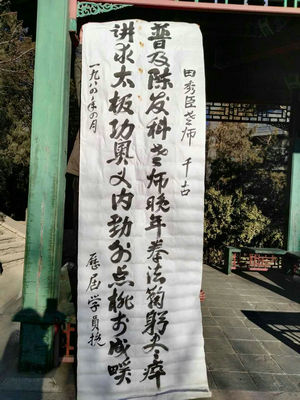 田秀臣老师 千古
普及陈发科老师晚年拳法鞠躬尽瘁
讲求太极功奥义内劲点桃李成蹊
一九八四年四月
历届学员挽